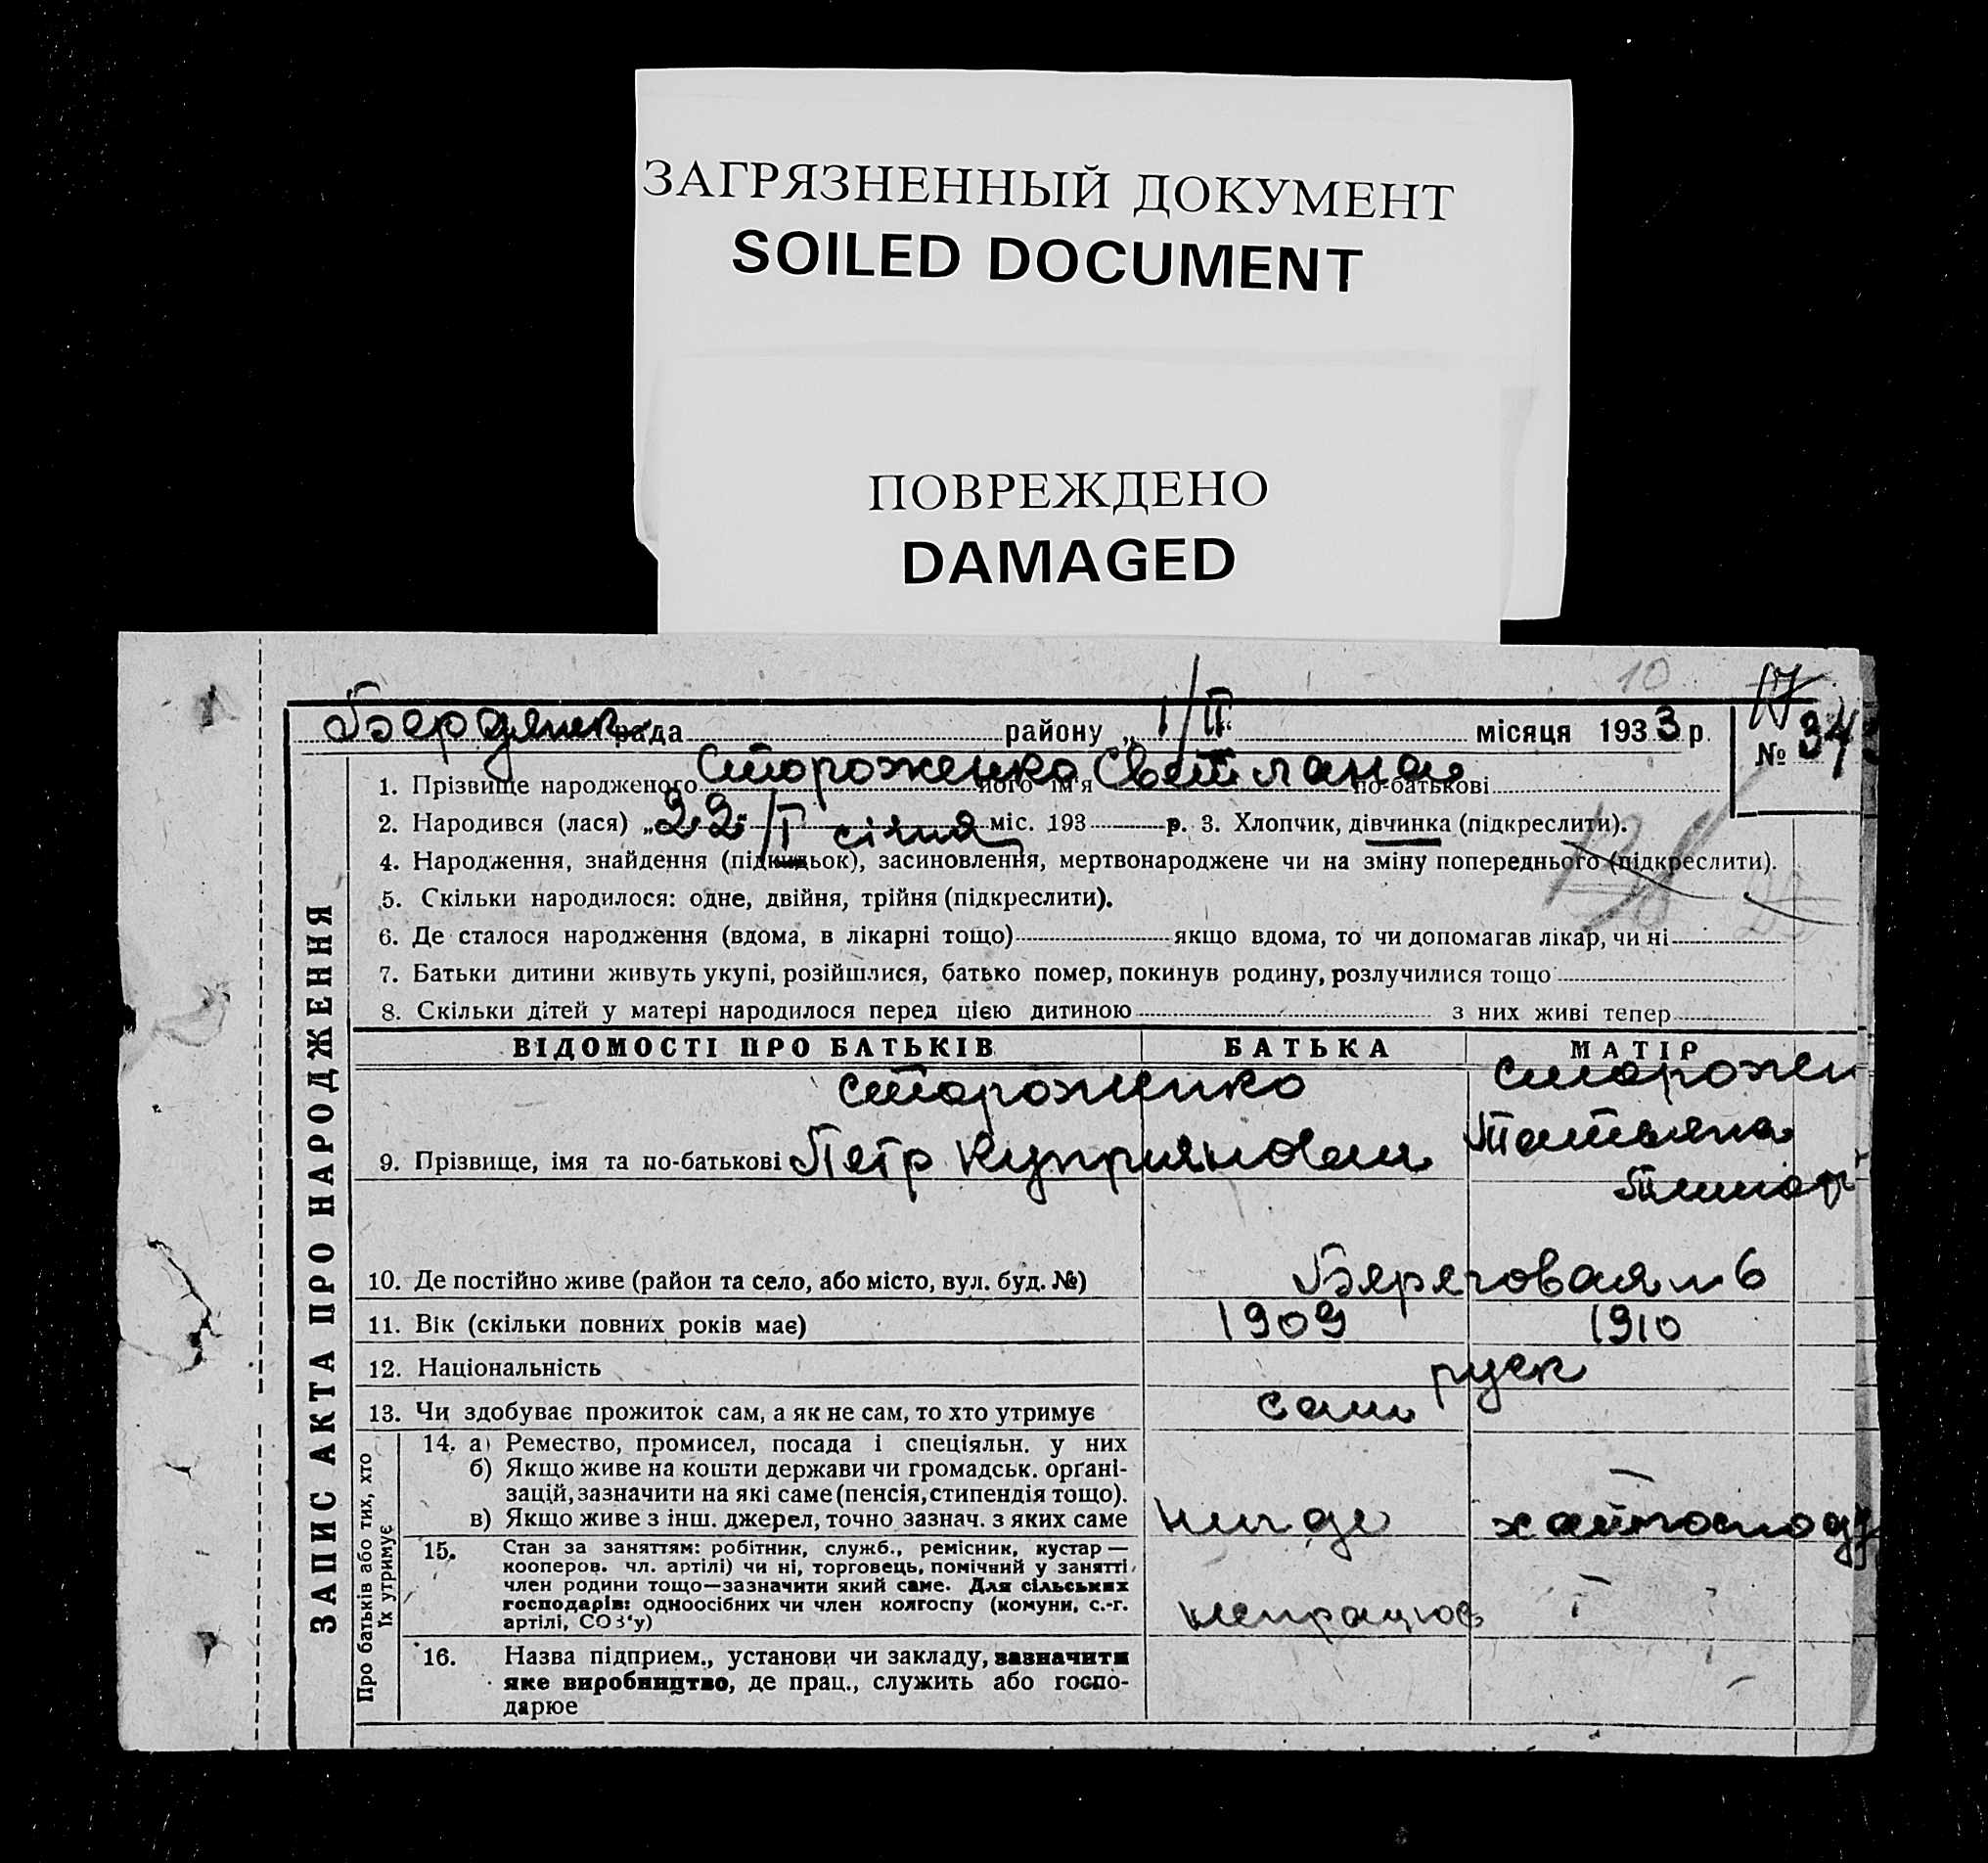 ЗАГРЯЗНЕННЫЙ ДОКУМЕНТ
SOILED DOCUMENT
ПОВРЕЖДЕНО
DAMAGED
10
17
Бердянск рада района „1/II“ місяця 1933 р. № 343
1. Прізвище народженого Стороженко його ім'я Светлана по-батькові
2. Народився (лася) „22“/I січня міс. 193 р. 3. Хлопчик, дівчинка (підкреслити).
4. Народження, знайдення (підкидьок), засиновлення, мертвонароджене чи на зміну попереднього (підкреслити).
5. Скільки народилося: одне, двійня, трійня (підкреслити).
6. Де сталося народження (вдома, в лікарні тощо) якщо вдома, то чи допомагав лікар, чи ні
7. Батьки дитини живуть укупі, розійшлися, батько помер, покинув родину, розлучилися тощо
8. Скільки дітей у матері народилося перед цією дитиною з них живі тепер
ЗАПИС АКТА ПРО НАРОДЖЕННЯ
ВІДОМОСТІ ПРО БАТЬКІВ БАТЬКА МАТІР
Стороженко Сторожен
9. Прізвище, імя та по-батькові Петр Куприянович Татьяна
Тимоф
10. Де постійно живе (район та село, або місто, вул. буд. №) Береговая 6
11. Вік (скільки повних років має) 1909 1910
12. Національність руск
13. Чи здобуває прожиток сам, а як не сам, то хто утримує сам
Про батьків або тих, хто їх утримує
14. а) Ремество, промисел, посада і спеціяльн. у них
б) Якщо живе на кошти держави чи громадськ. органі-
зацій, зазначити на які саме (пенсія, стипендія тощо).
в) Якщо живе з інш. джерел, точно зазнач. з яких саме нигде
15. Стан за заняттям: робітник, служб., ремісник, кустар —
кооперов. чл. артілі) чи ні, торговець, помічний у занятті,
член родини тощо—зазначити який саме. Для сільських
господарів: одноосібних чи член колгоспу (комуни, с.-г.
артілі, СОЗ'у) непрацює
16. Назва підприєм., установи чи закладу, зазначити
яке виробництво, де прац., служить або госпо-
дарює